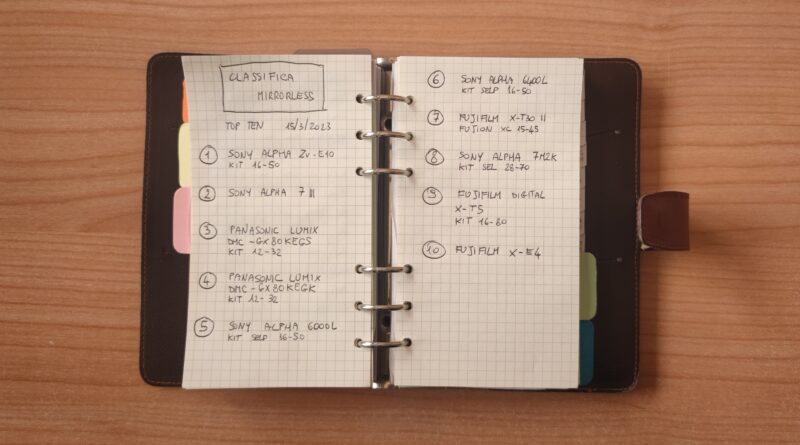 CLASSIFICA
MIRRORLESS
TOP TEN 15/3/2023
1 SONY ALPHA ZV-E10
KIT 16-50
2 SONY ALPHA 7 III
3 PANASONIC LUMIX
DMC-GX80KEGS
KIT 12-32
4 PANASONIC LUMIX
DMC-GX80KEGK
KIT 12-32
5 SONY ALPHA 6000L
KIT SELP 16-50
6 SONY ALPHA 6400L
KIT SELP 16-50
7 FUJIFILM X-T30 II
FUJION XC 15-45
8 SONY ALPHA 7M2K
KIT SEL 28-70
9 FUJIFILM DIGITAL
X-T5
KIT 16-80
10 FUJIFILM X-E4